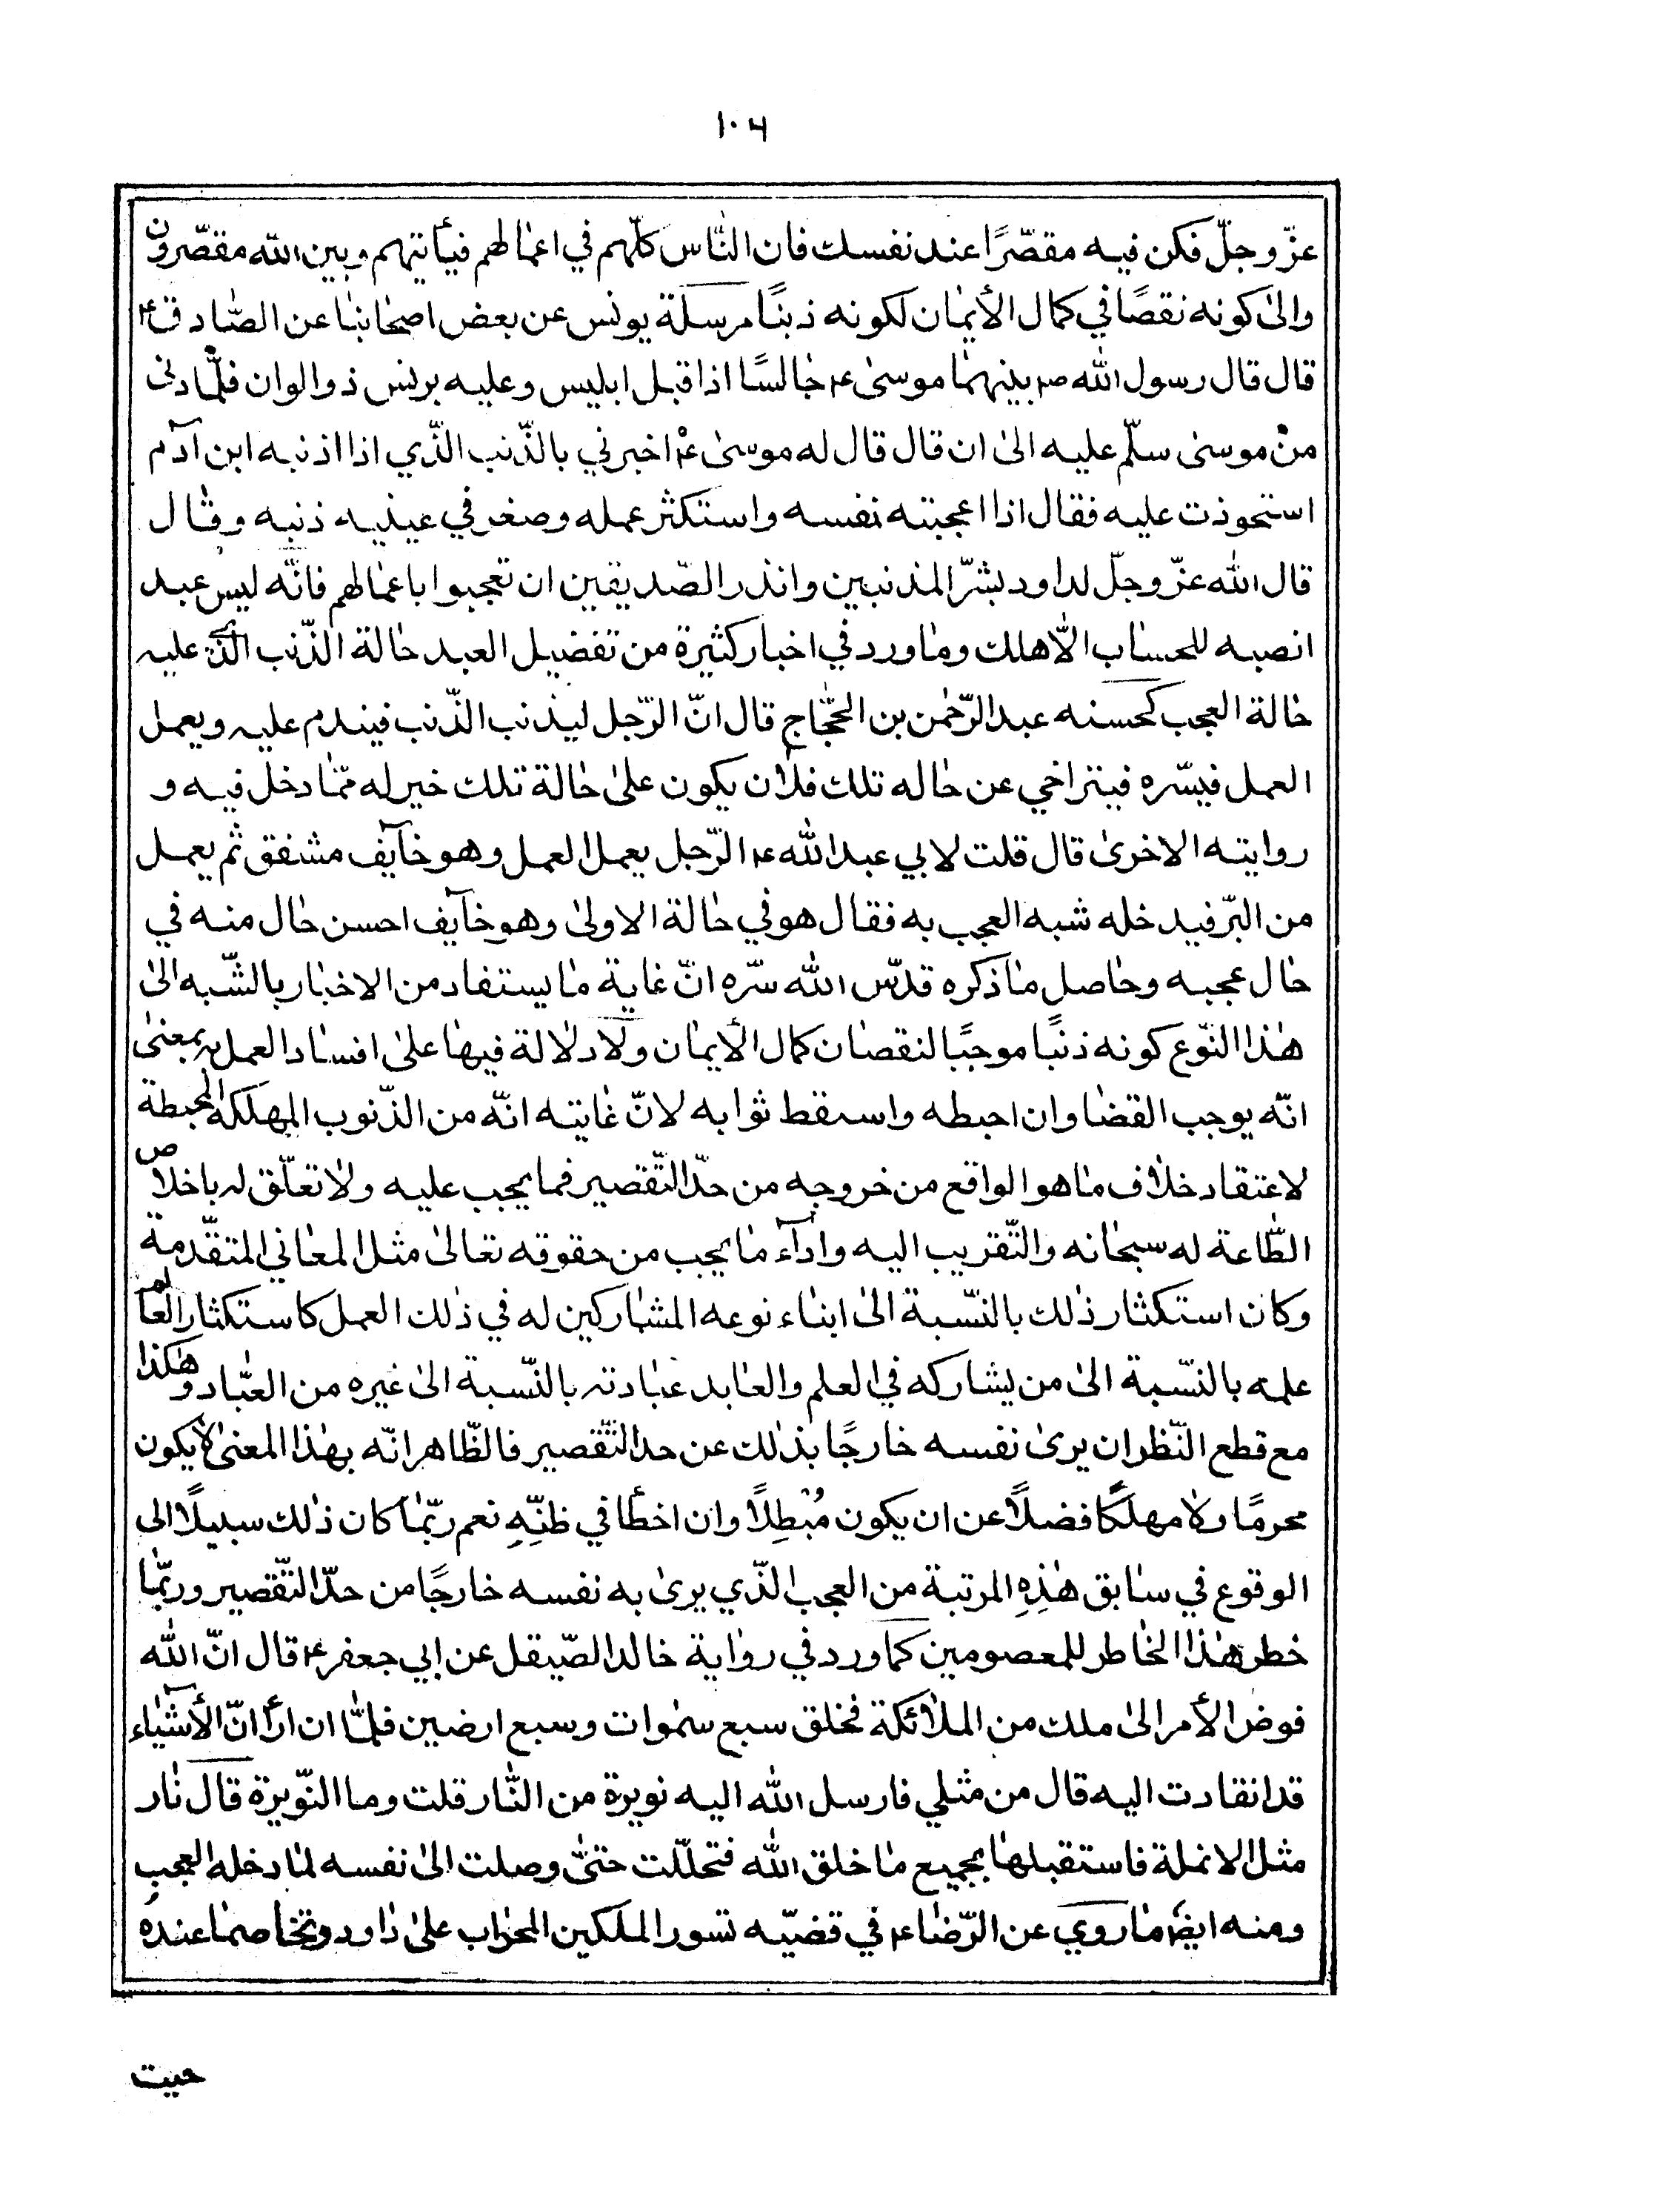 ١٠٦
عزّ وجلّ فكن فيه مقصّرًا عند نفسك فان النّاس كلّهم في اعمالهم فيما بينهم وبين الله مقصّرون
والى كونه نقصًا في كمال الأيمان لكونه ذنبًا مرسلة يونس عن بعض اصحابنا عن الصّادق ع
قال قال رسول الله ص بينهما موسى ع جالسًا اذا قبل ابليس وعليه برنس ذو الوان فلمّا دنى
من موسى سلّم عليه الى ان قال قال له موسى ع اخبرني بالذّنب الّذي اذا اذنبه ابن آدم
استحوذت عليه فقال اذا اعجبته نفسه واستكثر عمله وصغر في عينيه ذنبه وقال
قال الله عزّ وجلّ لداود بشّر المذنبين وانذر الصّديقين ان تعجبوا باعمالهم فانّه ليس عبد
انصبه للحساب الّا هلك وما ورد في اخبار كثيرة من تفضيل العبد حالة الذّنب الّذي عليه
حالة العجب كحسنه عبد الرّحمن بن الحجّاج قال انّ الرّجل ليذنب الذّنب فيندم عليه ويعمل
العمل فيسّره فيتراخى عن حاله تلك فلان يكون على حالة تلك خير له ممّا دخل فيه و
روايته الاخرى قال قلت لابي عبد الله ع الرّجل يعمل العمل وهو خآئف مشفق ثم يعمل
من البرّ فيدخله شبه العجب به فقال هو في حالة الاولى وهو خآئف احسن حال منه في
حال عجبه وحاصل ما ذكره قدّس الله سّره انّ غاية ما يستفاد من الاخبار بالنسّبة الى
هذا النّوع كونه ذنبًا موجبًا لنقصان كمال الأيمان ولا دلالة فيها على افساد العمل به بمعنى
انّه يوجب القضا وان احبطه واسقط ثوابه لانّ غايته انّه من الذّنوب المهلكة المحبطة
لاعتقاد خلاف ما هو الواقع من خروجه من حدّ التّقصير فما يجب عليه ولا تعلّق له باخلاص
الطّاعة له سبحانه والتّقريب اليه واداء ما يجب من حقوقه تعالى مثل المعاني المتقدّمة
وكان استكثار ذلك بالنّسبة الى ابناء نوعه المشاركين له في ذلك العمل كاستكثار العالم
علمه بالنّسبة الى من يشاركه في العلم والعابد عبادته بالنّسبة الى غيره من العبّاد وهكذا
مع قطع النّظر ان يرى نفسه خارجًا بذلك عن حد التّقصير فالظّاهر انّه بهذا المعنى لا يكون
محرمًا ولا مهلكًا فضلًا عن ان يكون مُبْطِلًا وان اخطأ في ظنِّهِ نعم ربّما كان ذلك سبيلًا الى
الوقوع في سابق هذِهِ المرتبة من العجب الّذي يرى به نفسه خارجًا من حدّ التّقصير وربّما
خطر هذا الخاطر للمعصومين كما ورد في رواية خالد الصّيقل عن ابي جعفر ع قال انّ الله
فوض الأمر الى ملك من الملائكة فخلق سبع سموات وسبع ارضين فلمّا ان رأ انّ الأشياء
قد انقادت اليه قال من مثلي فارسل الله اليه نويرة من النّار قلت وما النّويرة قال نار
مثل الانملة فاستقبلها بجميع ما خلق الله فتحلّلت حتّى وصلت الى نفسه لما دخله العجب
ومنه ايضا ما روي عن الرّضا ع في قضيّه تسور الملكين المحراب على داود وتخاصما عنده
حيث